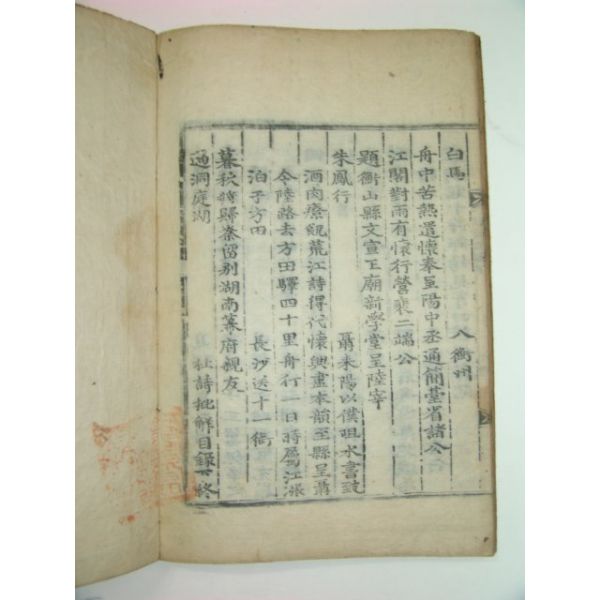 白馬 入衡州
舟中苦熱遣懷奉呈陽中丞通簡臺省諸公
江閣對雨有懷行營裴二端公
題衡山縣文宣王廟新學堂呈陸宰
朱鳳行 聶耒陽以僕阻水書致
酒肉療飢荒江詩得代懷興盡本韻至縣呈聶
令陸路去方田驛四十里舟行一日時屬江漲
泊于方田 長沙送十一銜
暮秋將歸秦留別湖南幕府親友
過洞庭湖 杜詩批解目錄下終